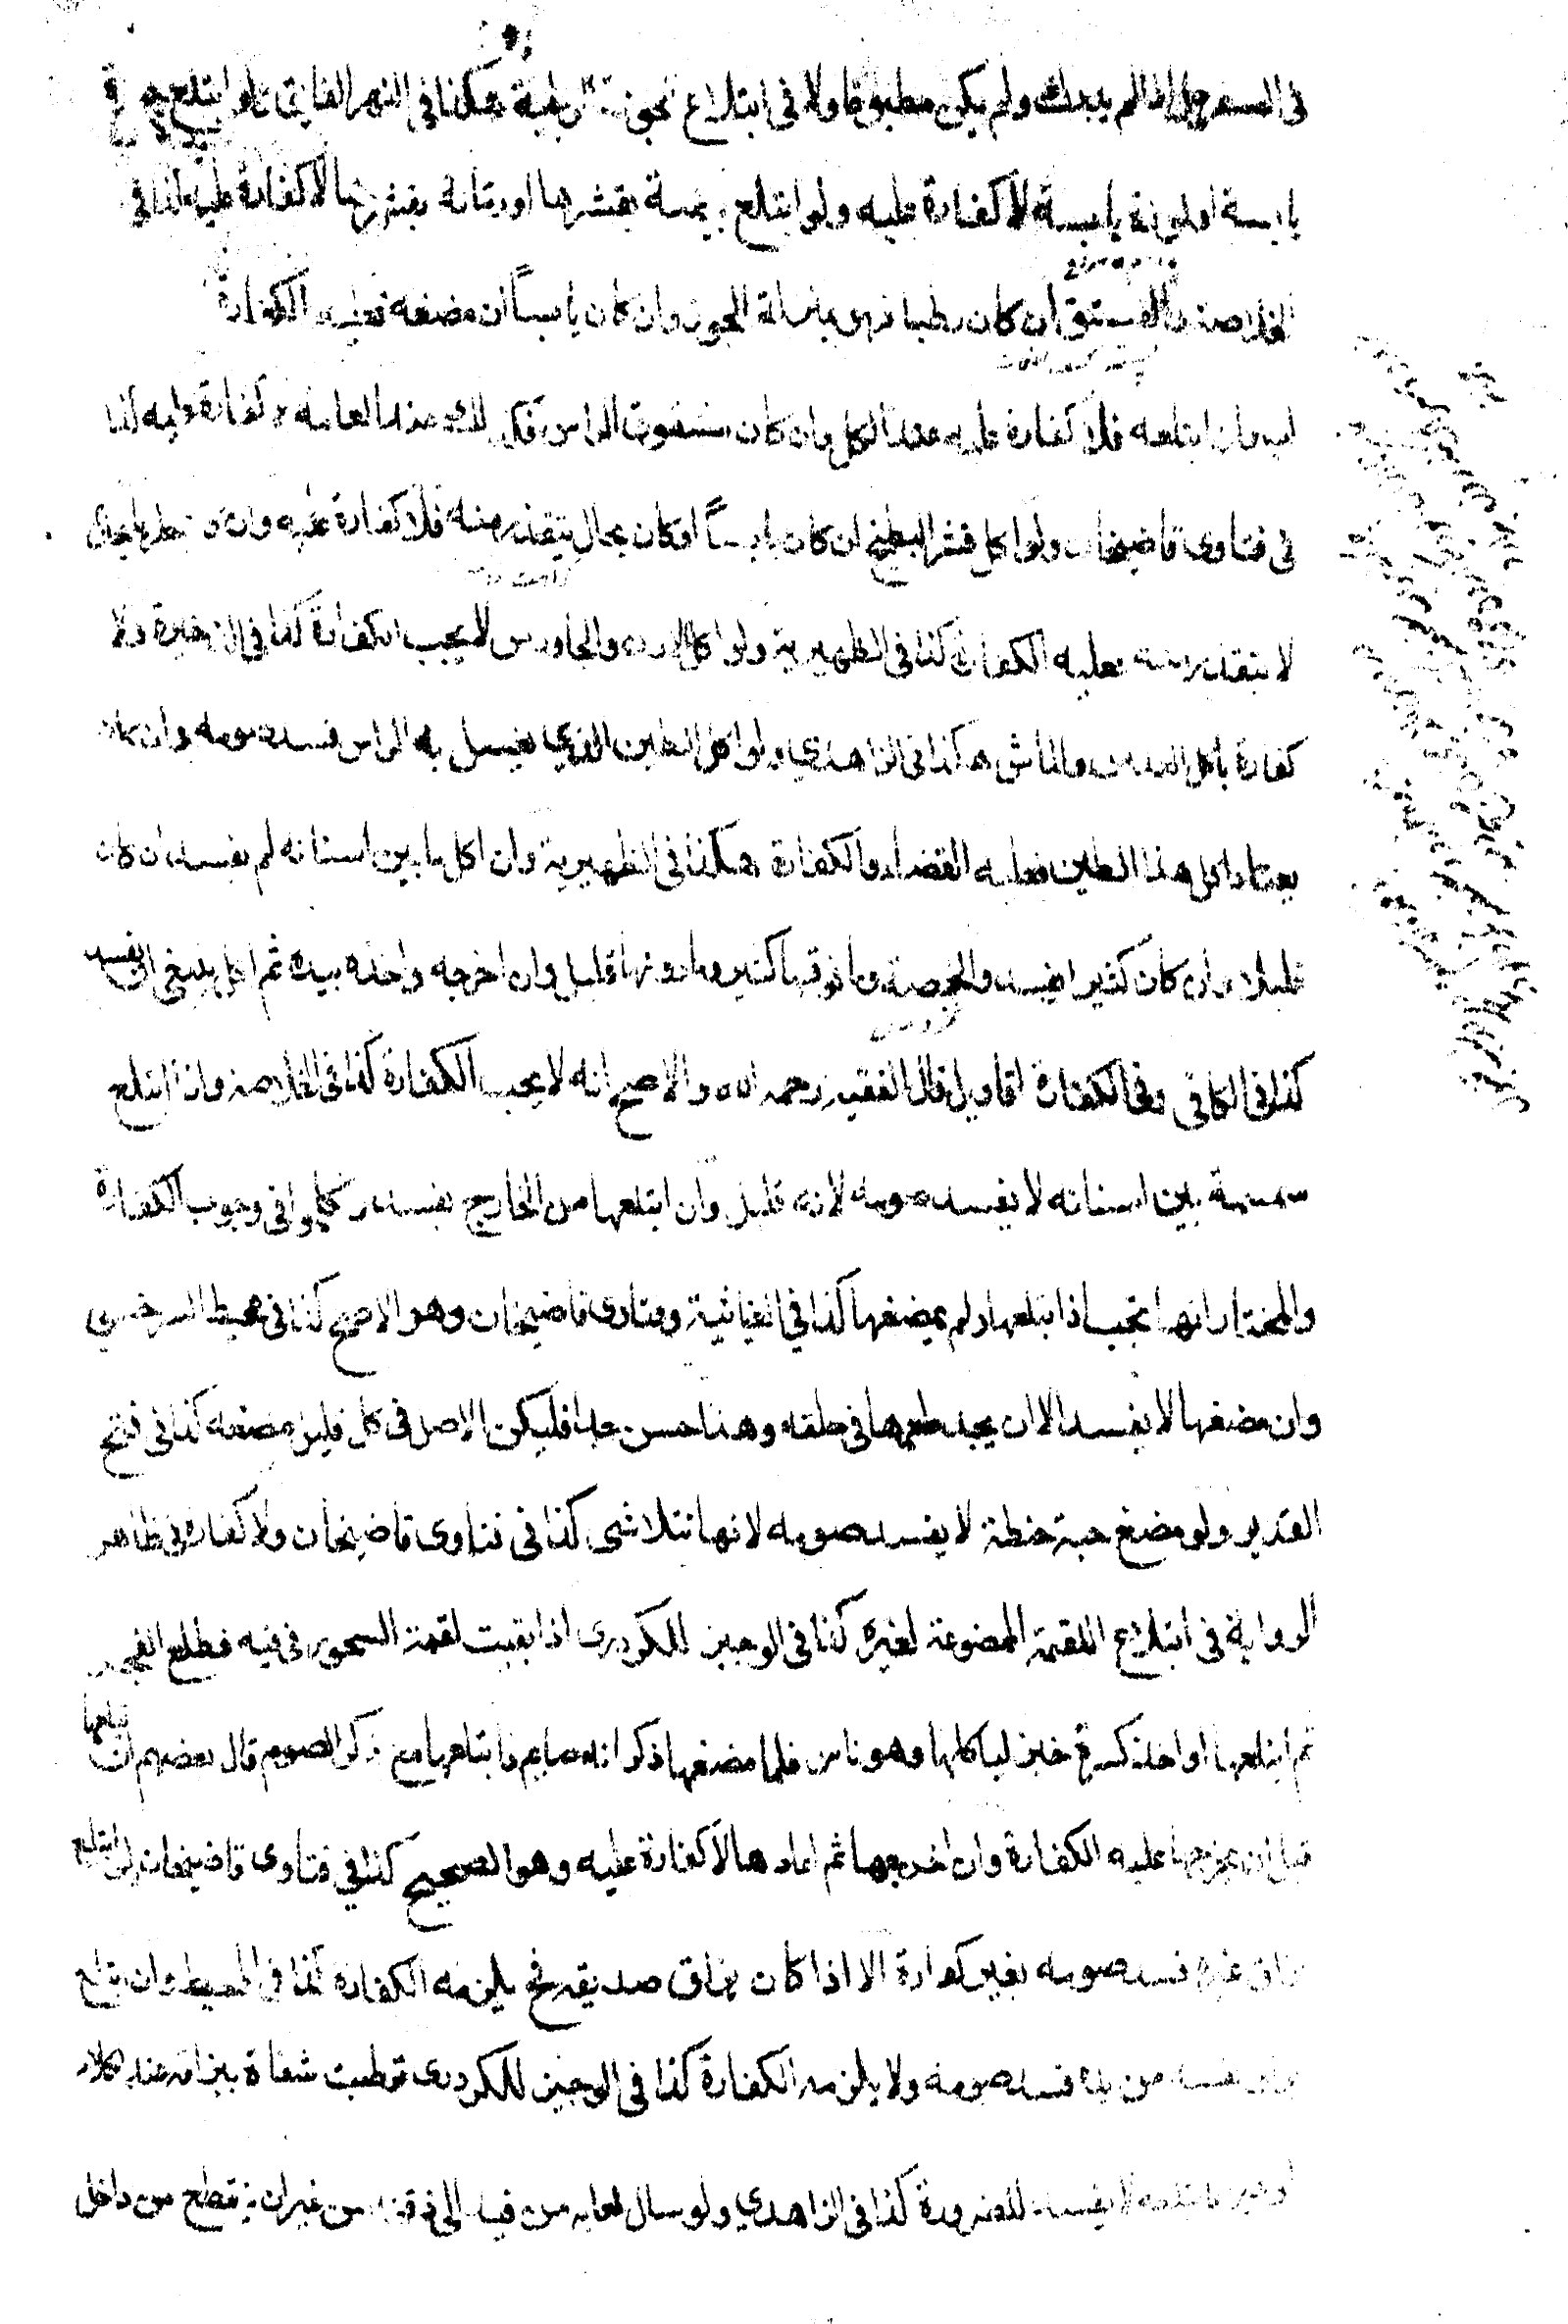 في السفرجل اذا لم يدرك ولم يكن مطبوخا ولا في ابتلاع الجوزة الرطبة هكذا في النهر الفائق ولو ابتلع جوزة
يابسة او لوزة يابسة لا كفارة عليه ولو ابتلع بيضة بقشرها او رمانة بقشرها لا كفارة عليه كذا في
الخلاصة والفستق ان كان رطبا فهو بمنزلة الجوز وان كان يابساً ان مضغه فعليه الكفارة
وان ابتلعه فلا كفارة عليه عند الكل وان كان مشقوق الراس فكذلك عند العامة لا كفارة عليه كذا
في فتاوى قاضيخان ولو اكل قشر البطيخ ان كان يابساً او كان بحال يتقذر منه فلا كفارة عليه وان كان طريا بحال
لا يتقذر منه فعليه الكفارة كذا في الظهيرية ولو اكل الارز والجاورس لا يجب الكفارة كذا في الذخيرة ولا
كفارة باكل العدس والماش هكذا في الزاهدي ولو اكل الطين الذي يغسل به الراس فسد صومه وان كان
يعتاد اكل هذا الطين فعليه القضاء والكفارة هكذا في الظهيرية وان اكل ما بين اسنانه لم يفسد ان كان
قليلا وان كان كثيرا يفسد والحمصة وما فوقها كثير وما دونها قليل وان اخرجه واخذه بيده ثم اكل ينبغي ان يفسد
كذا في الكافي وفي الكفارة اقاويل قال الفقيه رحمه الله والاصح انه لا يجب الكفارة كذا في الخلاصة واذا ابتلع
سمسمة بين اسنانه لا يفسد صومه لانه قليل وان ابتلعها من الخارج يفسد وتكلموا في وجوب الكفارة
والمختار انها تجب اذا ابتلعها ولم يمضغها كذا في الغياثية وفتاوى قاضيخان وهو الاصح كذا في محيط السرخسي
وان مضغها لا يفسد الا ان يجد طعمها في حلقه وهذا حسن جدا فليكن الاصل في كل قليل مضغه كذا في فتح
القدير ولو مضغ حبة حنطة لا يفسد صومه لانها تتلاشى كذا في فتاوى قاضيخان ولا كفارة في ظاهر
الرواية في ابتلاع اللقمة الممضوغة لغيره كذا في الوجيز للكردري اذا بقيت لقمة السحور في فيه فطلع الفجر
ثم ابتلعها او اخذ كسرة خبز لياكلها وهو ناس فلما مضغها ذكر انه صايم فابتلعها مع ذكر الصوم قال بعضهم ان ابتلعها
قبل ان يخرجها عليه الكفارة وان اخرجها ثم اعادها لا كفارة عليه وهو الصحيح كذا في فتاوى قاضيخان ولو ابتلع
بزاق غيره فسد صومه بغير كفارة الا اذا كان بزاق صديقه فح يلزمه الكفارة كذا في المحيط وان ابتلع
بزاق نفسه من يده فسد صومه ولا يلزمه الكفارة كذا في الوجيز للكردرى ترطبت شفاه ببزاقه عند الكلام
او غيره فابتلعه لا يفسد للضرورة كذا في الزاهدي ولو سال لعابه من فيه الى ذقنه من غير ان ينقطع من داخل